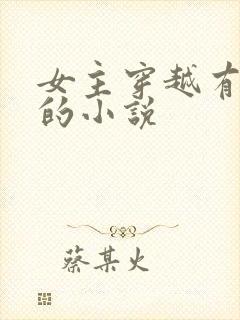 女主穿越有
的小説
蔡某火